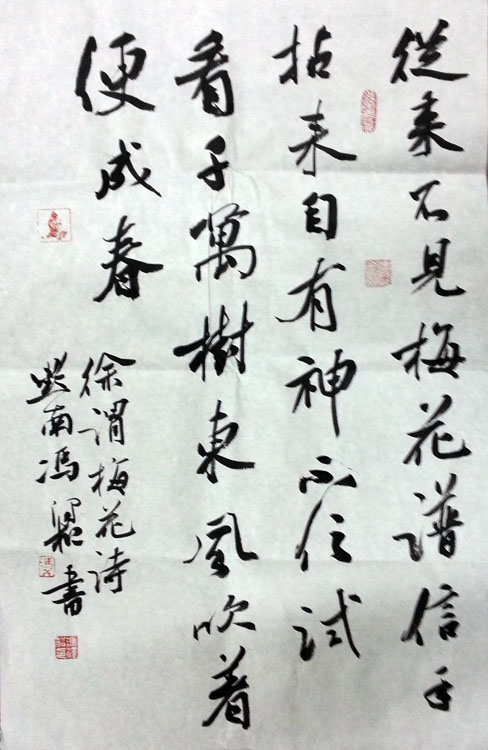 從来不見梅花譜信手
拈来自有神不信試
看千萬樹東風吹着
便成春
徐渭梅花詩
南馮書